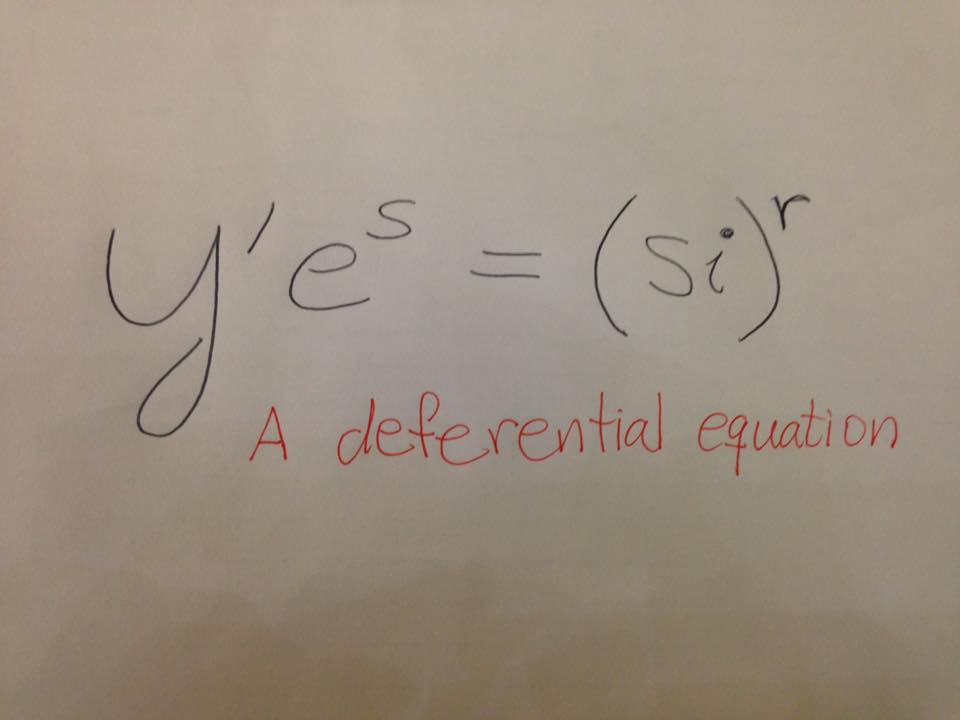 y'eˢ = (si)ʳ
A deferential equation